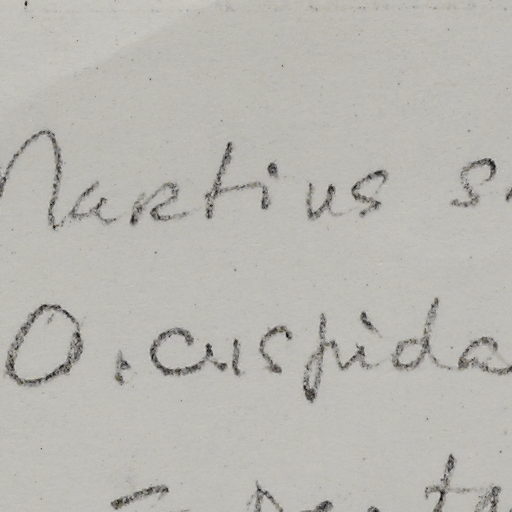 Martius s
O. cuspida